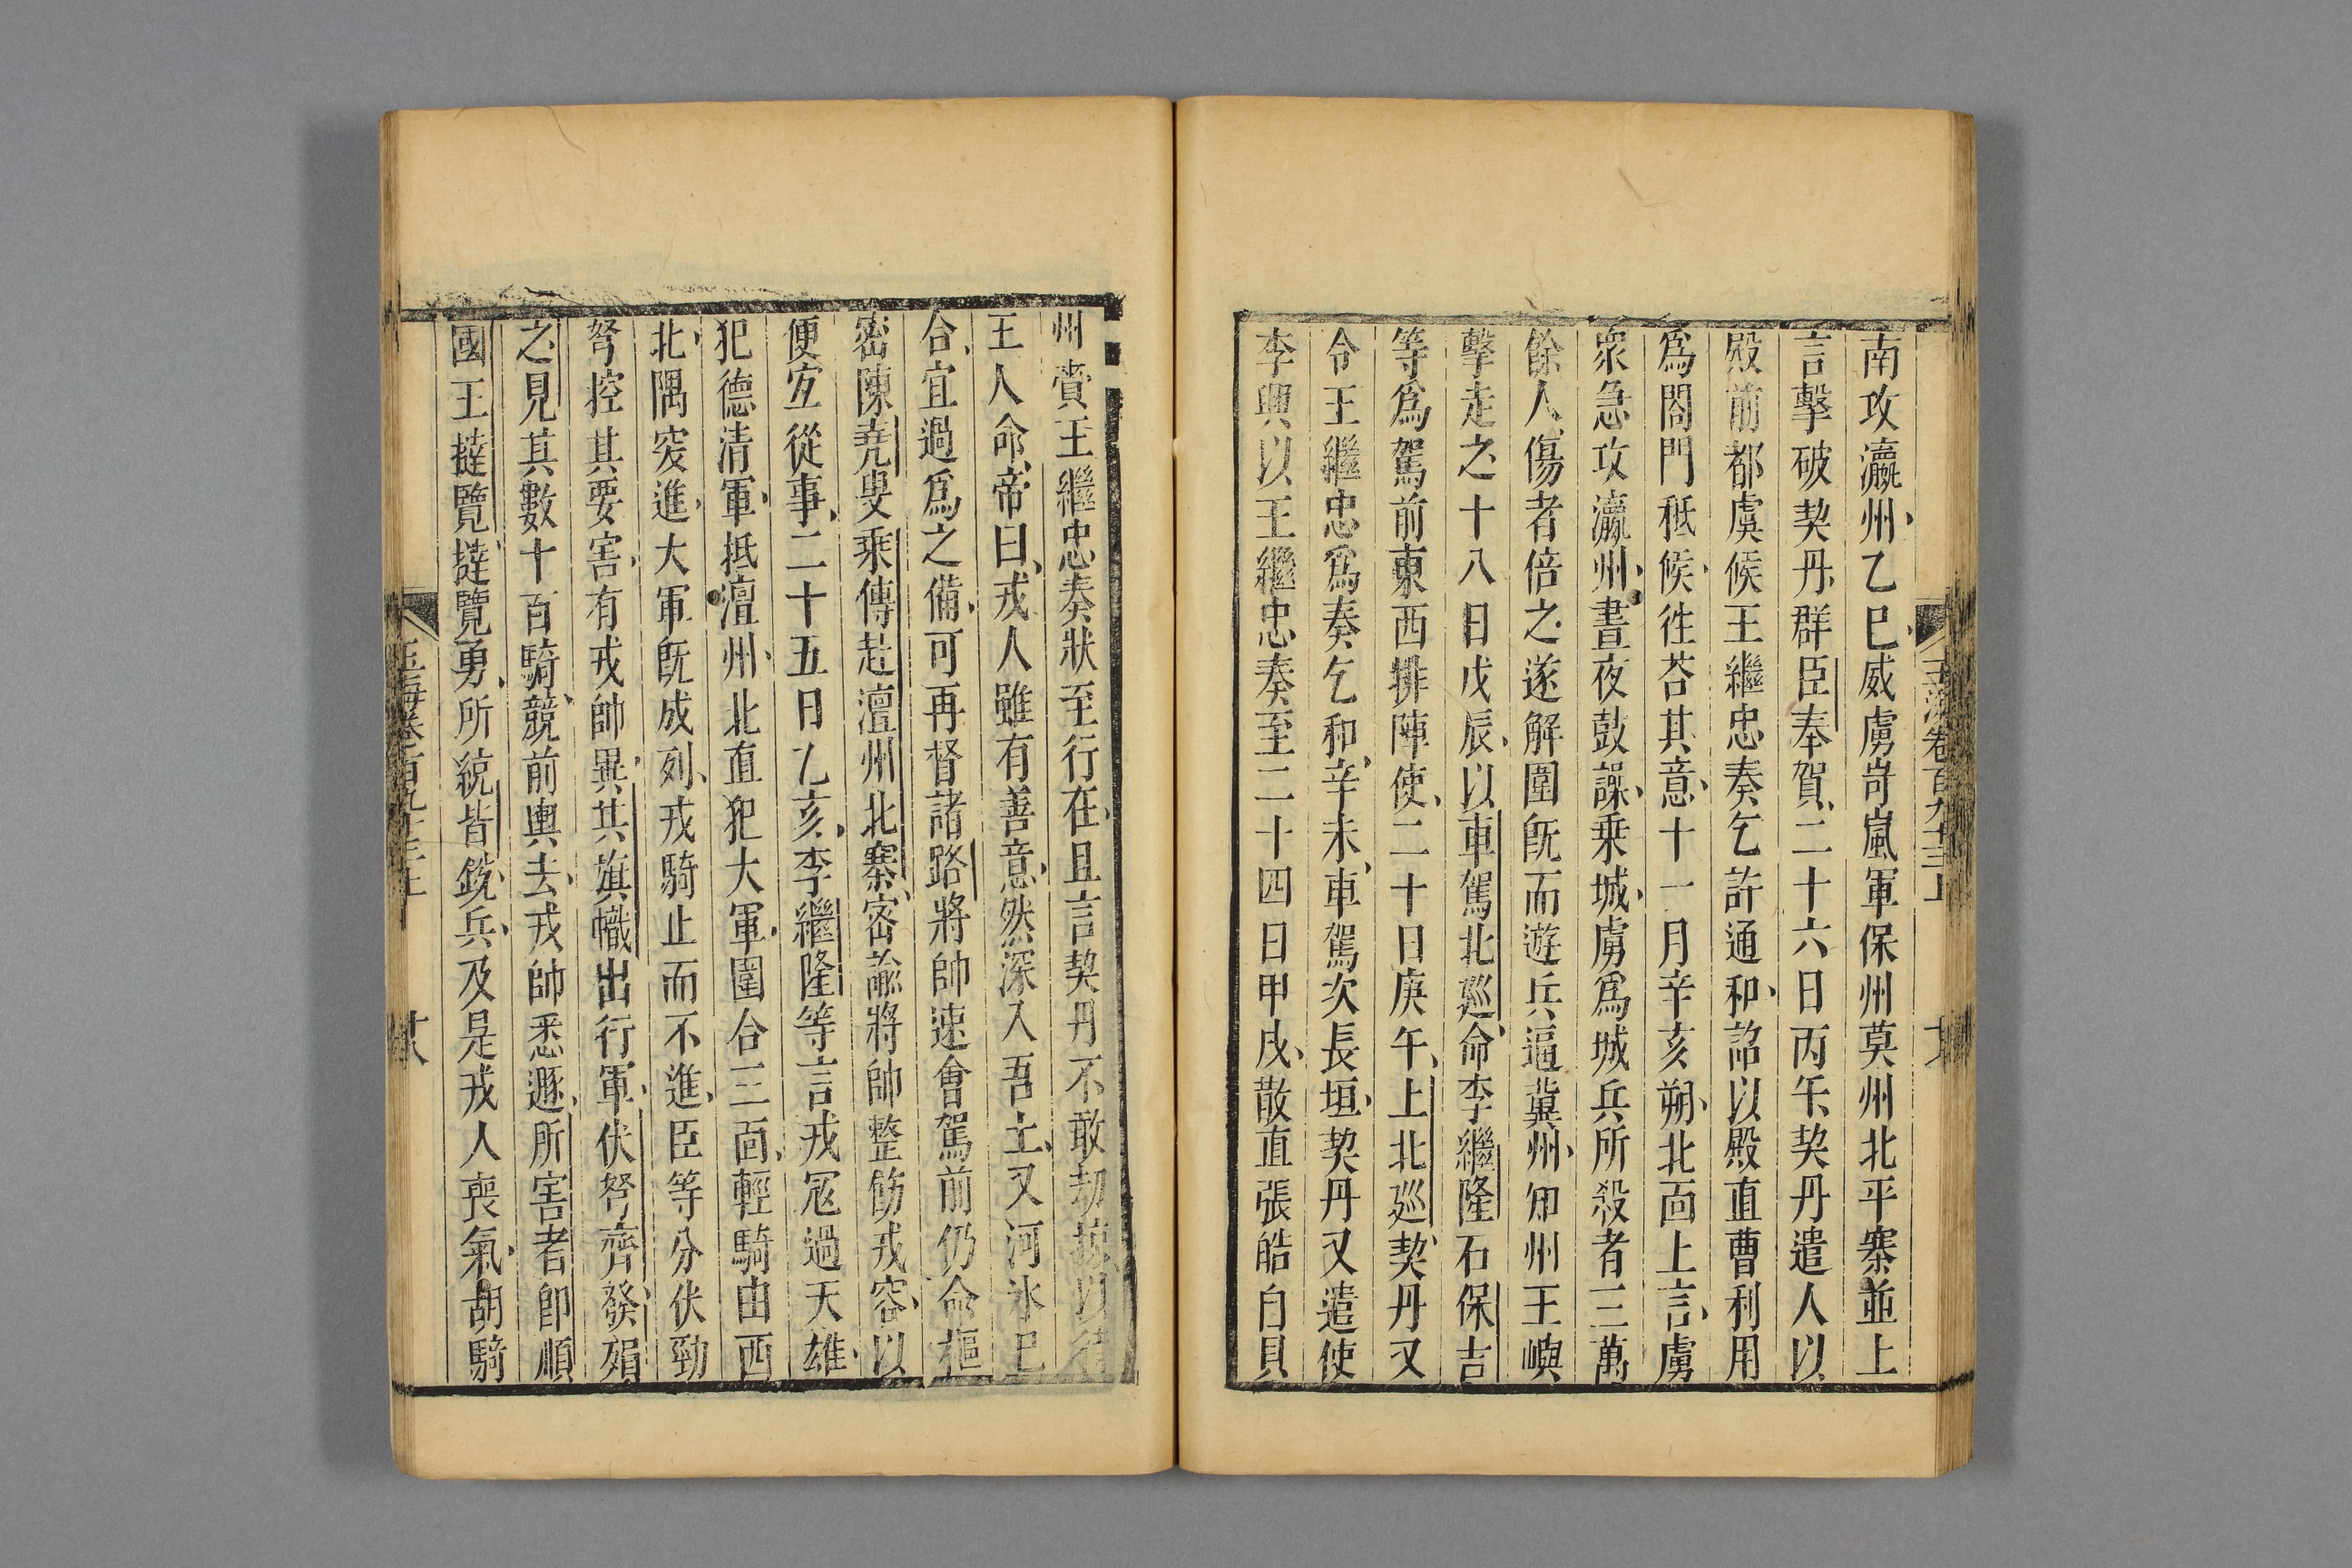 南攻瀛州乙巳威虜岢嵐軍保州莫州北平寨並上
言擊破契丹群臣奉賀二十六日丙午契丹遣人以
殿前都虞候王繼忠奏乞許通和詔以殿直曹利用
爲閤門祗候徃荅其意十一月辛亥朔北面上言虜
衆急攻瀛州晝夜鼓譟乗城虜爲城兵所殺者三萬
餘人傷者倍之遂解圍旣而遊兵逼冀州知州王嶼
擊走之十八日戊辰以車駕北廵命李繼隆石保吉
等爲駕前東西排陣使二十日庚午上北廵契丹又
令王繼忠爲奏乞和辛未車駕次長垣契丹又遣使
李興以王繼忠奏至二十四日甲戌散直張皓自貝
玉海卷百九十三上
州賫王繼忠奏狀至行在且言契丹不敢刼掠以待
王人命帝曰戎人雖有善意然深入吾土又河氷已
合宜過爲之備可再督諸路將帥速會駕前仍命樞
密陳堯叟乗傳赴澶州北寨密諭將帥整飭戎容以
便宐從事二十五日乙亥李繼隆等言戎冦過天雄
犯德清軍抵澶州北直犯大軍圍合三面輕騎由西
北隅突進大軍旣成列戎騎止而不進臣等分伏勁
弩控其要害有戎帥異其旗幟出行軍伏弩齊發殞
之見其數十百騎競前輿去戎帥悉遯所害者卽順
國王撻覽撻覽勇所統皆銳兵及是戎人喪氣胡騎
玉海卷百九十三上
廿八